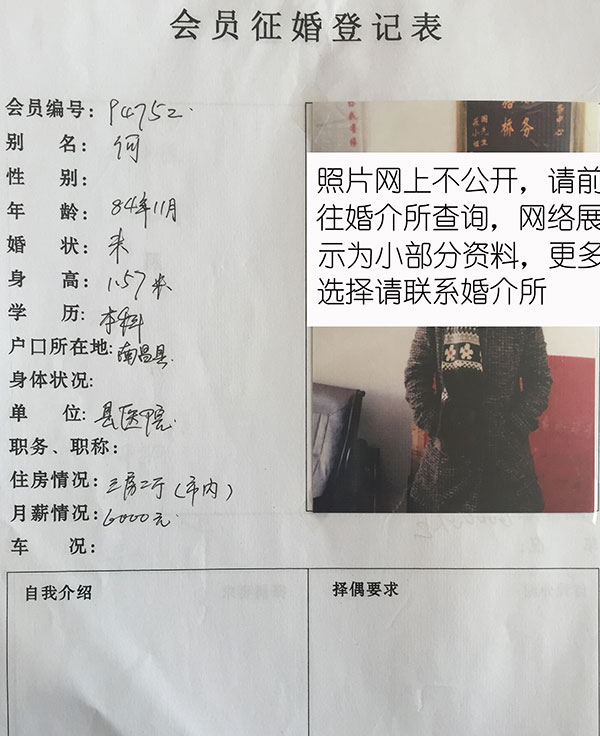 会员征婚登记表
会员编号：P4752.
别 名：何
性 别：
年 龄：84年11月
婚 状：未
身 高：1.57米
学 历：本科
户口所在地：南昌县.
身体状况:
单 位：县医院.
职务、职称：
住房情况：三房二厅（市内）
月薪情况：6000元.
车 况：
照片网上不公开，请前
往婚介所查询，网络展
示为小部分资料，更多
选择请联系婚介所
自我介绍
择偶要求